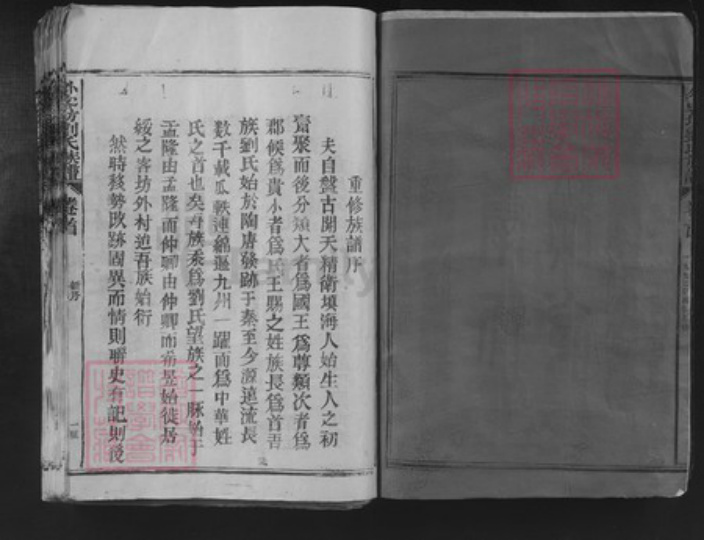 重修族譜序
夫自盤古開天精衛填海人始生人之初
齊聚而後分類大者為國王為尊類次者為
郡候為貴小者為民王賜之姓族長為首吾
族劉氏始於陶唐發跡于秦至今源遠流長
數千載瓜瓞連綿遍九州一躍而為中華姓
氏之首也矣吾族系為劉氏望族之一脉始于
孟隆由孟隆而仲卿由仲卿而希昱始徙居
綏之客坊外村迨吾族始衍
然時發勢政跡固異而情則聯史有記則後
劉氏族譜
卷首
新序